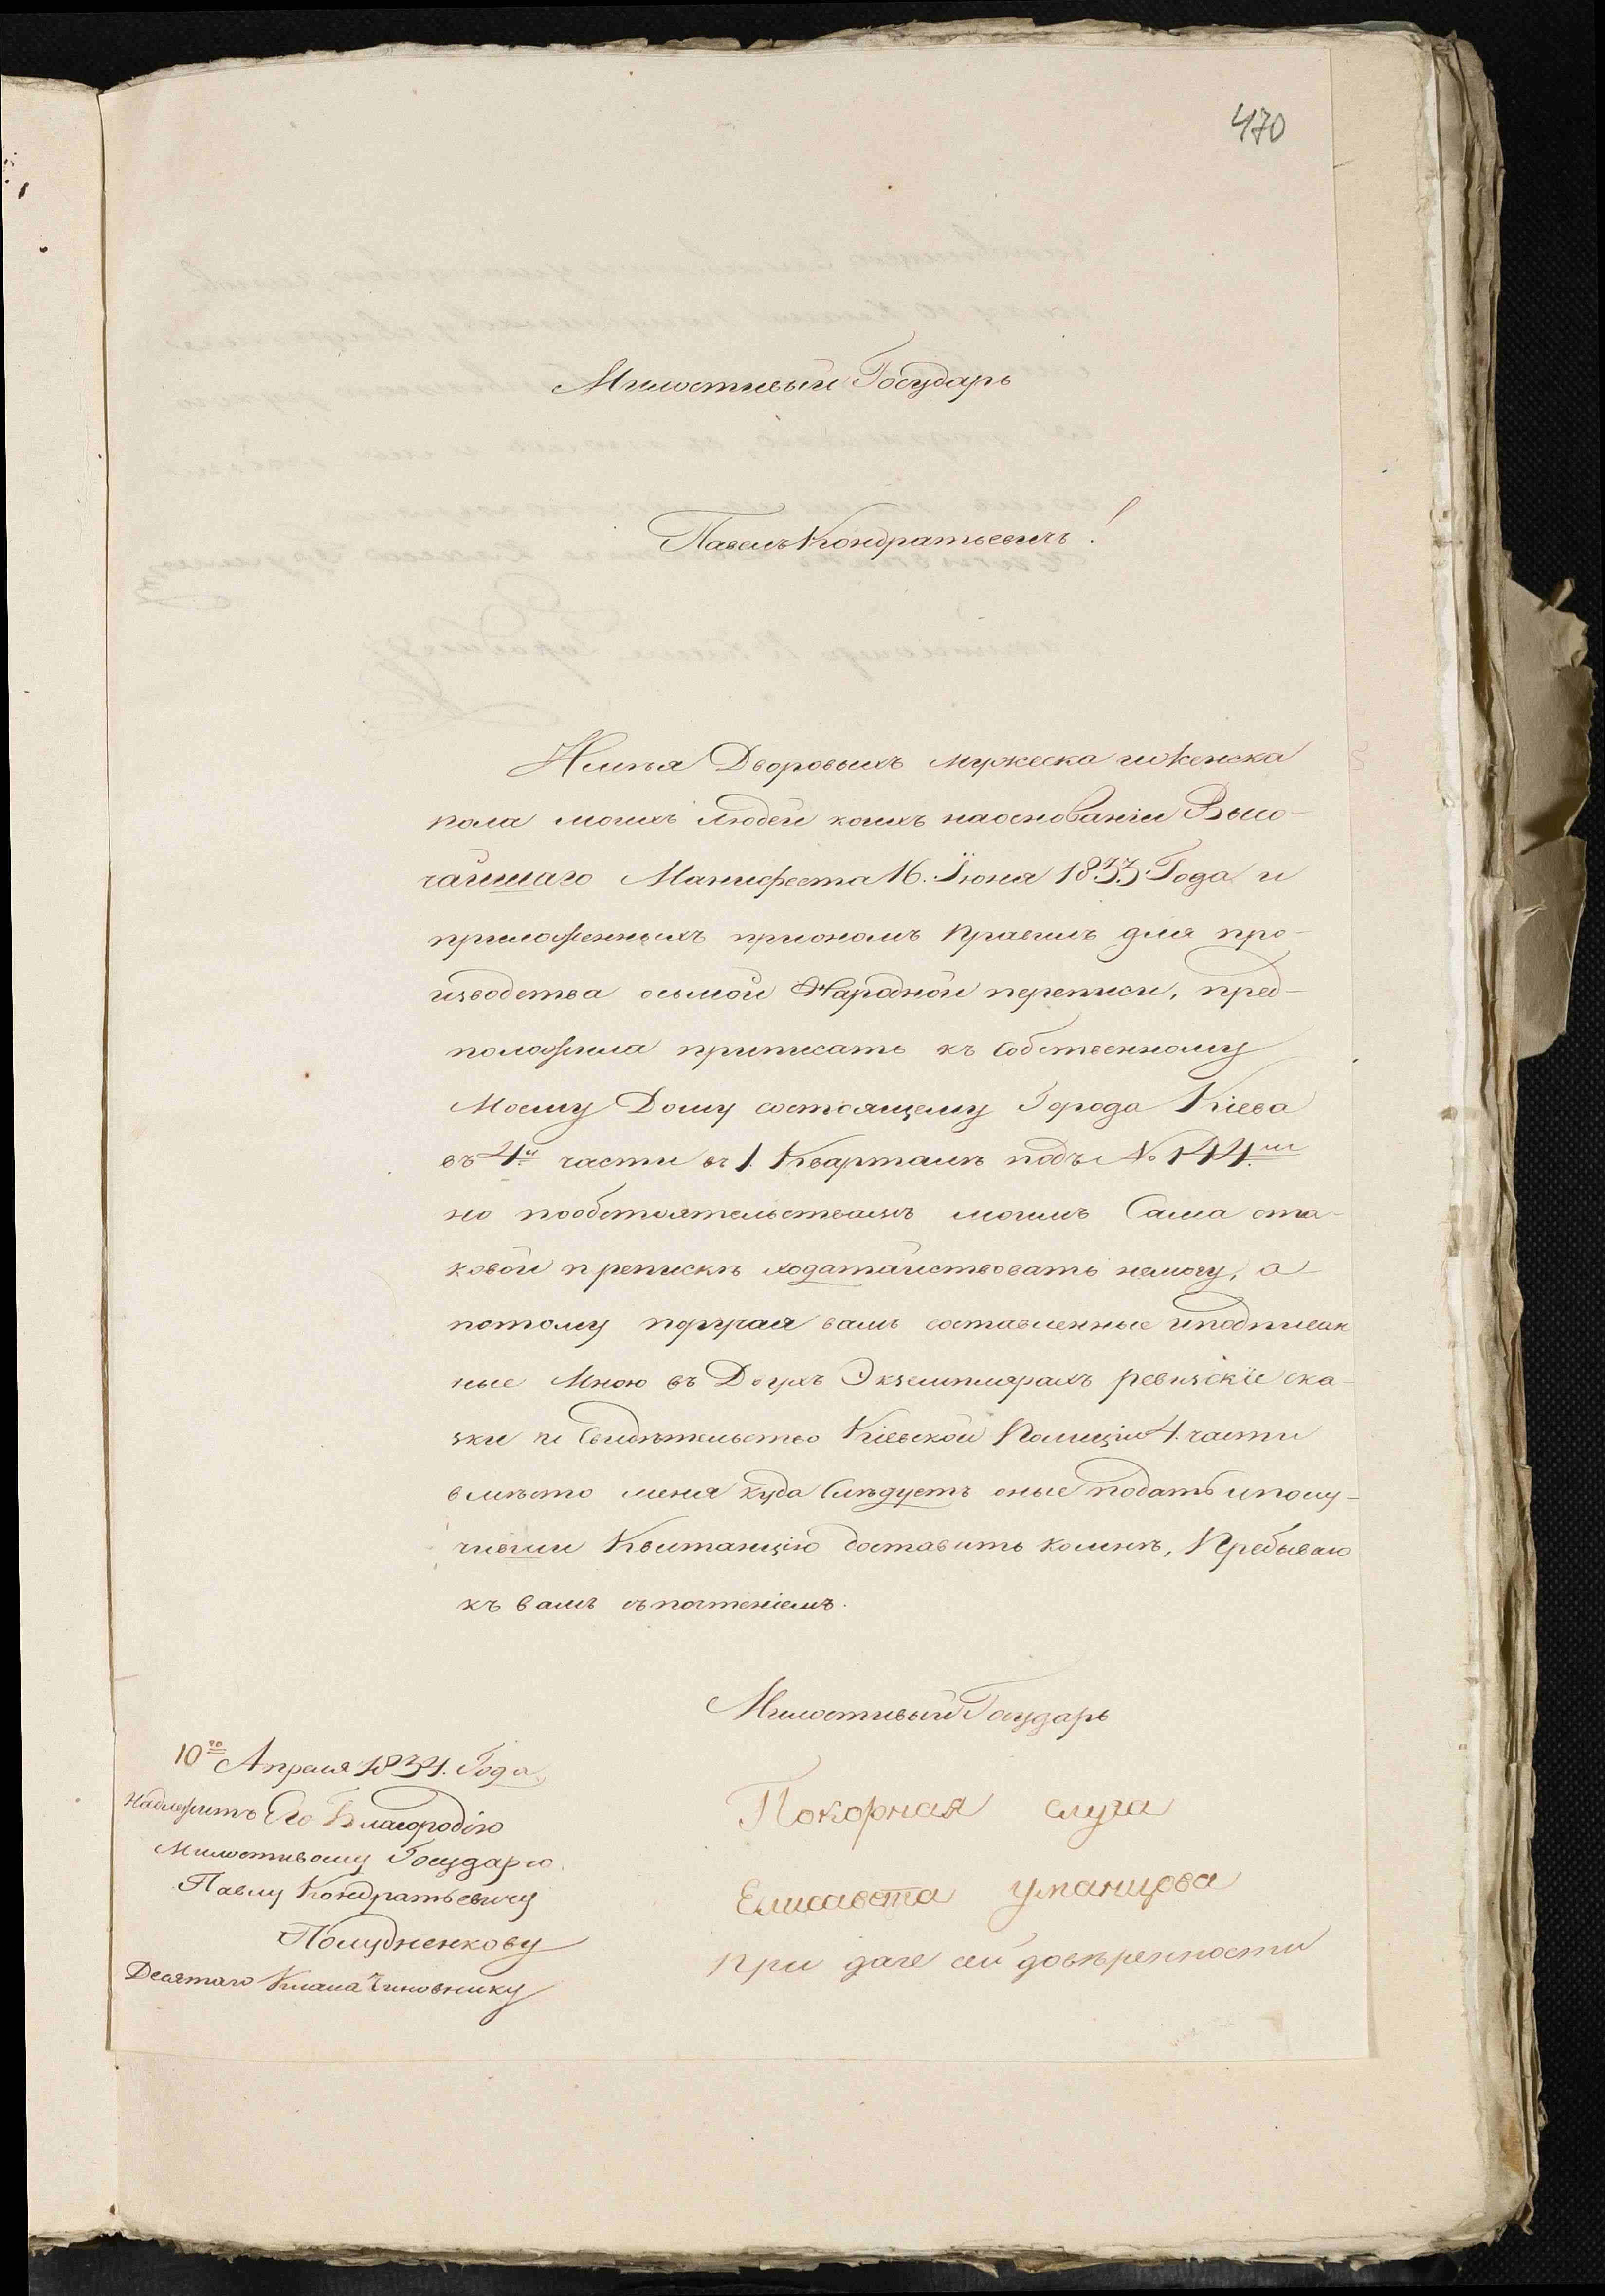 470
Милостивый Государь
Павелъ Кондратьевичъ!
Дворовыхъ мужеска иженска
пола моихъ людей коихъ наоснованіи Высо-
чайшаго Манифеста 16. Іюня 1833. Года и
приложенныхъ приономъ правилъ для про-
изводства осьмой Народной переписи, пред-
положила приписать къ Собственному
Моему Дому состоящему Города Кіева
въ 4й части въ 1. Кварталѣ подъ № 144.м
но пообстоятельствамъ моимъ Сама ота-
ковой препискѣ ходатайствовать немогу, а
потому поручая вамъ составленные иподписан
ные Мною въ Двухъ Экземплярахъ ревизскіе ска-
зки и Свидѣтельство Кіевской Полиціи 4. части
вмѣсто меня куда Слѣдуетъ оные подать иполу-
чивши Квитанцію доставить комнѣ, Пребываю
къ вамъ съпочтеніемъ.
Милостивый Государь
Покорная слуга
Елисавета уманцова
при даче сей довѣренности
10го Апреля 1834. Года
Надлежитъ Его Благородію
Милостивому Государю
Павлу Кондратьевичу
Полудненкову
Десятаго Класа Чиновнику